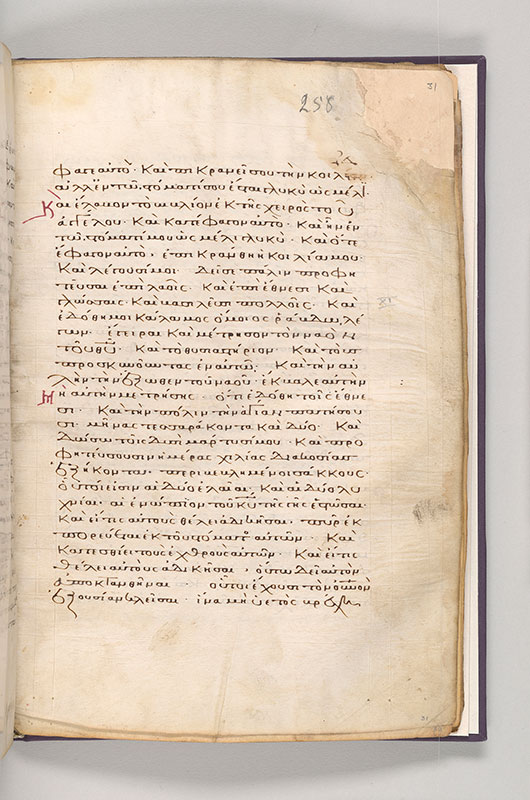 258
31
φάγε αυτὸ· Καὶ πικρανεῖ σου τὴν κοιλί
αλλ' ἐν τῶ στόματί σου ἔσται γλυκὺ ὡς μέλι
Καὶ ἔλαβον τὸ βιβλίον ἐκ τῆς χειρὸς τοῦ
ἀγγέλου. Καὶ κατέφαγον αυτὸ· Καὶ ἦν ἐν
τῶ στόματί μου ὡς μέλι γλυκὺ· Καὶ ὅτε
ἔφαγον αυτὸ, ἐπικράνθη ἡ κοιλία μου·
Καὶ λέγουσί μοι· Δεῖ σε πάλιν προφη
τεῦσαι ἐπὶ λαοῖς· Καὶ ἐπὶ ἔθνεσι Καὶ
γλώσσαις· Καὶ βασιλεῦσι πολλοῖς· Καὶ
ἐδόθη μοι κάλαμος ὅμοιος ῥάβδω, λέ
γων· ἔγειραι Καὶ μέτρησον τὸν ναὸν
τοῦ θυ· Καὶ τὸ θυσιαστήριον· Καὶ τοὺς
προσκυνοῦντας ἐν αυτῶ· Καὶ τὴν αυ
λὴν τὴν ἔξωθεν τοῦ ναοῦ· ἔκβαλε αυτὴν
μὴ αυτὴν μετρήσης· ὅτι ἐδόθη τοῖς ἔθνε
σι· Καὶ τὴν πόλιν τὴν ἁγίαν πατήσου
σι· μῆνας τεσσαράκοντα Καὶ δύο· Καὶ
δώσω τοῖς δυσὶ μάρτυσί μου· Καὶ προ
φητεύσουσιν ἡμέρας χιλίας διακοσίας
ἑξήκοντα· περιβεβλημένοι σάκκους·
οὗτοι εἰσὶν αἱ δύο ἐλαῖαι, Καὶ αἱ δύο λυ
χνίαι· αἱ ἐνώπιον τοῦ κυ τῆς γῆς ἑστῶσαι·
Καὶ εἴ τις αυτοὺς θέλει ἀδικῆσαι· πῦρ ἐκ
πορεύεται ἐκ τοῦ στόματος αυτῶν· Καὶ
κατεσθίει τοὺς ἐχθροὺς αυτῶν· Καὶ εἴ τις
θέλει αυτοὺς ἀδικῆσαι, οὕτω δεῖ αυτὸν
ἀποκτανθῆναι· οὗτοι ἔχουσι τὸν οὐνὸν
ἐξουσίαν κλεῖσαι· ἵνα μὴ ὑετὸς
31